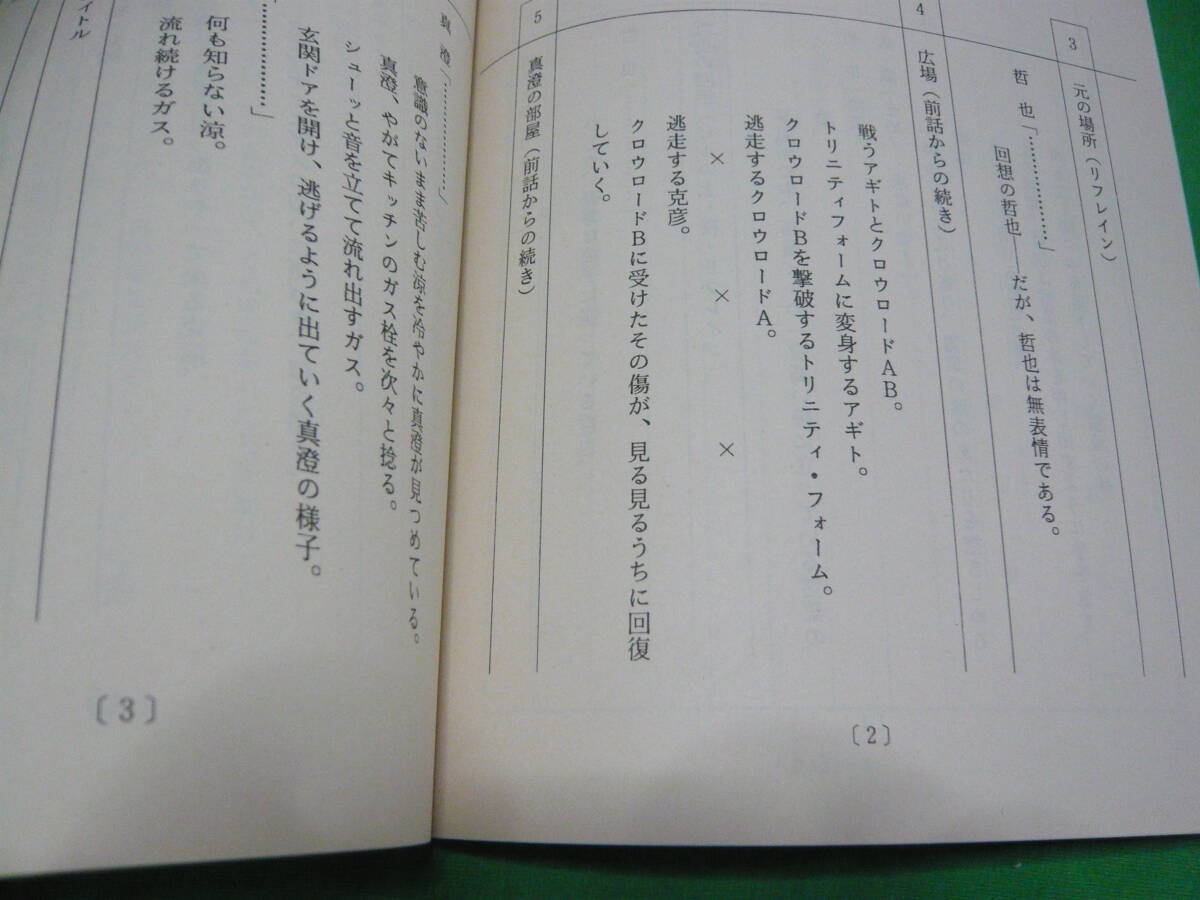 3
元の場所（リフレイン）
哲也「………………」
回想の哲也――だが、哲也は無表情である。
4
広場（前話からの続き）
戦うアギトとクロウロードＡＢ。
トリニティフォームに変身するアギト。
クロウロードＢを撃破するトリニティ・フォーム。
逃走するクロウロードＡ。
×　×　×
逃走する克彦。
クロウロードＢに受けたその傷が、見る見るうちに回復
していく。
5
真澄の部屋（前話からの続き）
〔2〕
真澄「………………」
意識のないまま苦しむ涼を冷やかに真澄が見つめている。
真澄、やがてキッチンのガス栓を次々と捻る。
シューッと音を立てて流れ出すガス。
玄関ドアを開け、逃げるように出ていく真澄の様子。
………………」
何も知らない涼。
流れ続けるガス。
イトル
〔3〕